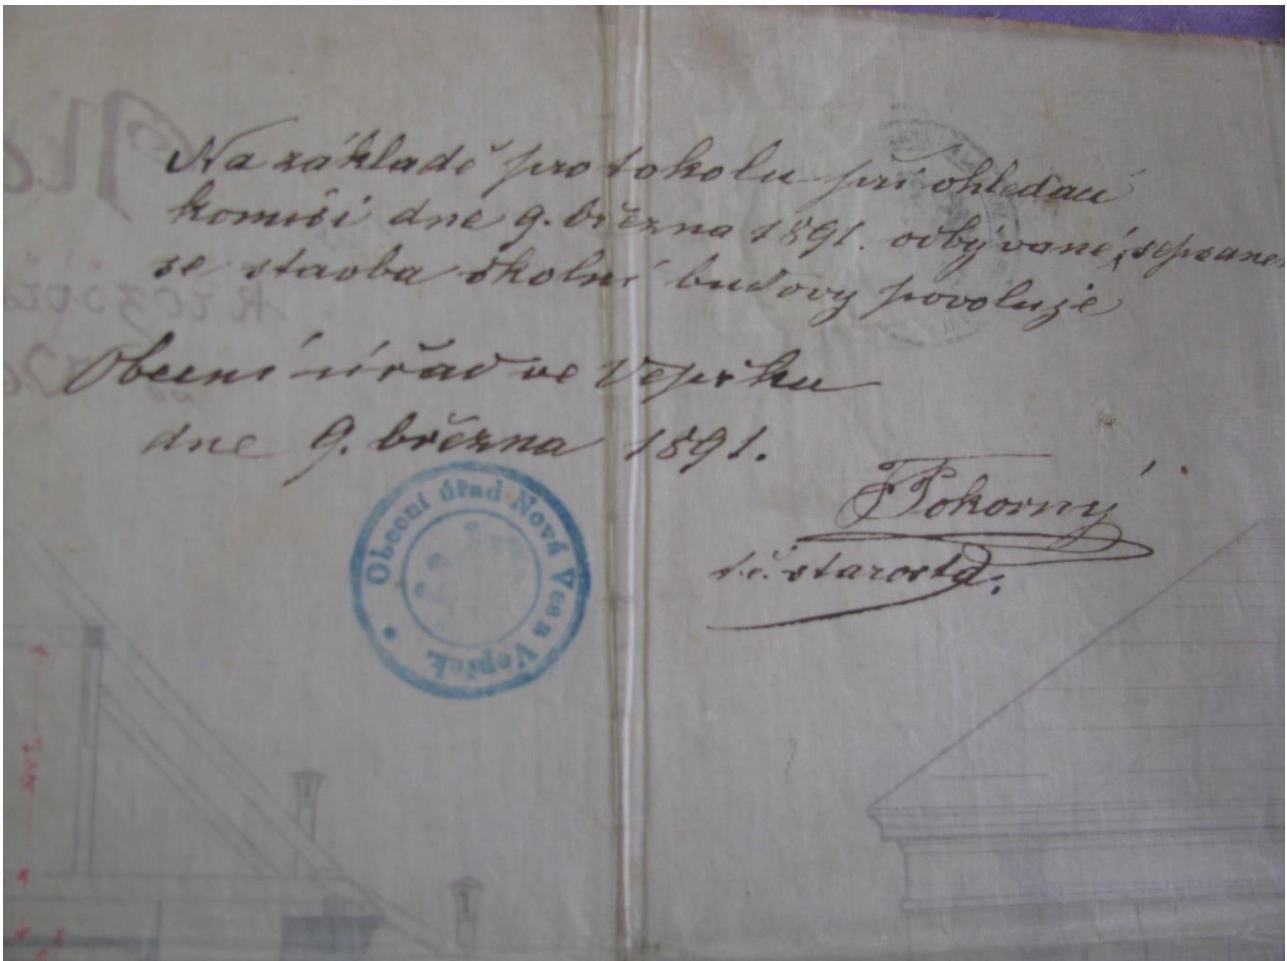 Na základě protokolu při ohledací
komisi dne 9. března 1891. odbývané, sepsaného
se stavba školní budovy povoluje
Obecní úřad ve Vepřku
dne 9. března 1891.
FPokorný
t.č. starosta.
Obecní úřad Nová Ves a Vepřek.